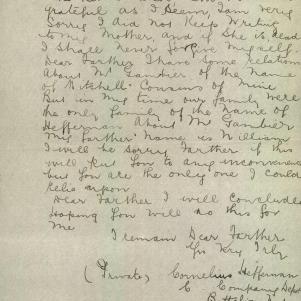 grateful as I Seem, I am very
Sorry I did not Keep Writing
to my Mother, and if She is, dead
I Shall never forgive myself.
Dear Farther I have Some relations
About Mt Gambier of the Name
of Mitchell. Cousins of Mine
But in my time our family were
the only family of the Name of
Hefferman About Mt Gambier
My farther Name is William
I will be Sorry Farther if this
will put You to any inconvenience
but You are the only one I could
relie upon
Dear Farther I will conclude
hoping You will do this for
Me
I remain Dear Farther
Yrs Try Trly
(Private, Cornelius Hefferman
C Company Depot